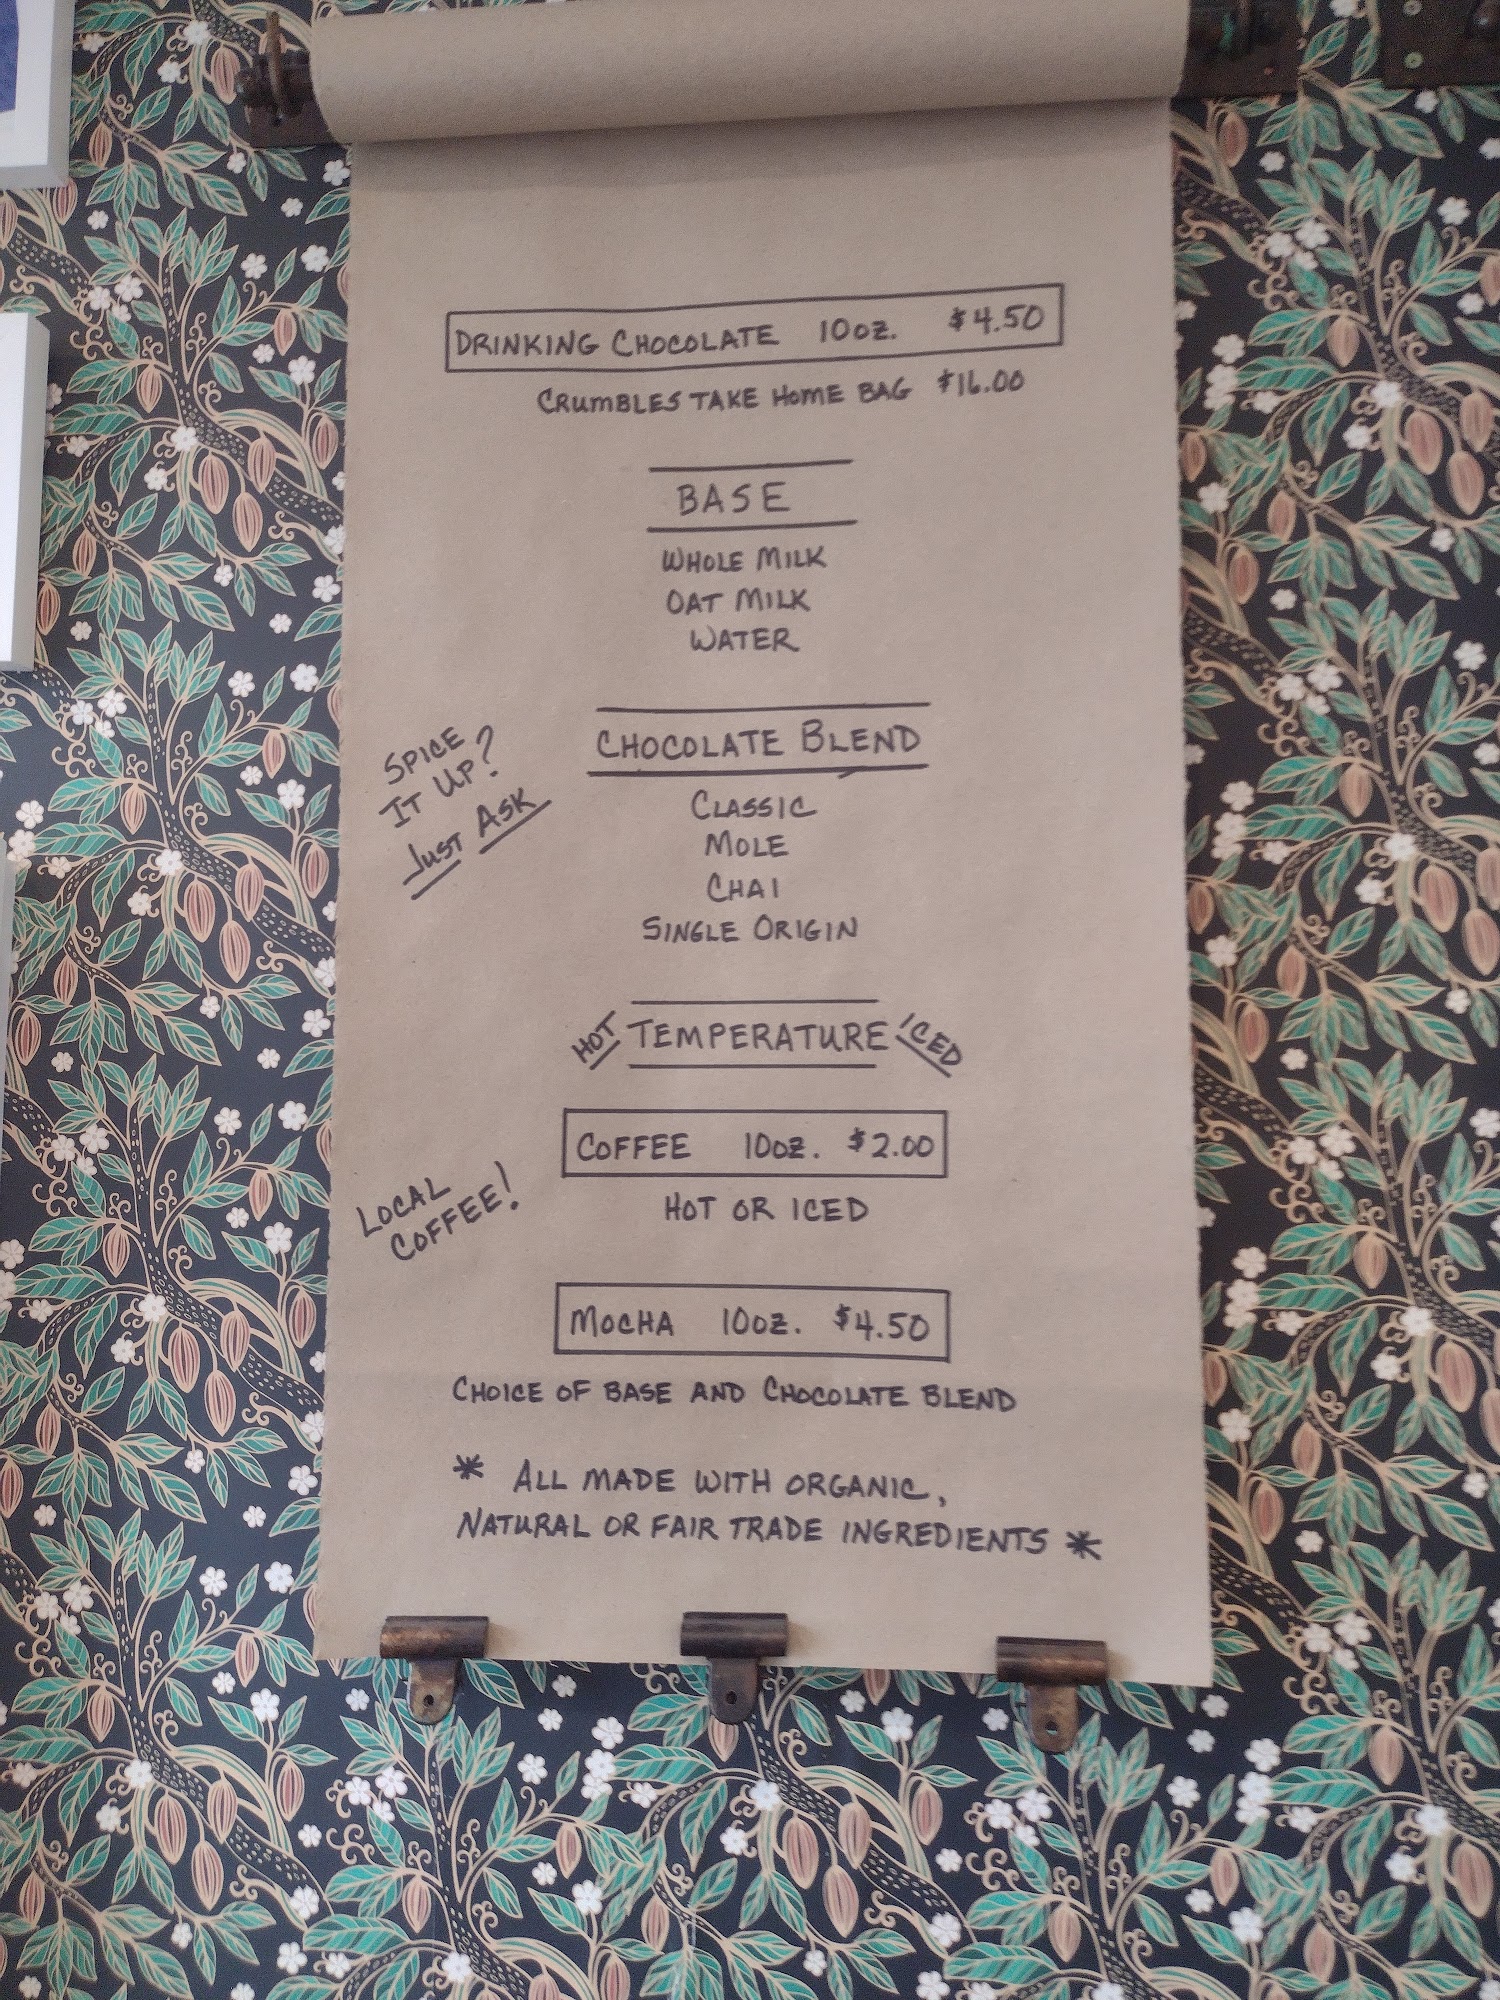 DRINKING CHOCOLATE 10oz. $4.50
CRUMBLES TAKE HOME BAG $16.00
BASE
WHOLE MILK
OAT MILK
WATER
SPICE
IT UP?
JUST ASK
CHOCOLATE BLEND
CLASSIC
MOLE
CHAI
SINGLE ORIGIN
HOT TEMPERATURE ICED
COFFEE 10oz. $2.00
HOT OR ICED
LOCAL
COFFEE!
MOCHA 10oz. $4.50
CHOICE OF BASE AND CHOCOLATE BLEND
* ALL MADE WITH ORGANIC,
NATURAL OR FAIR TRADE INGREDIENTS *